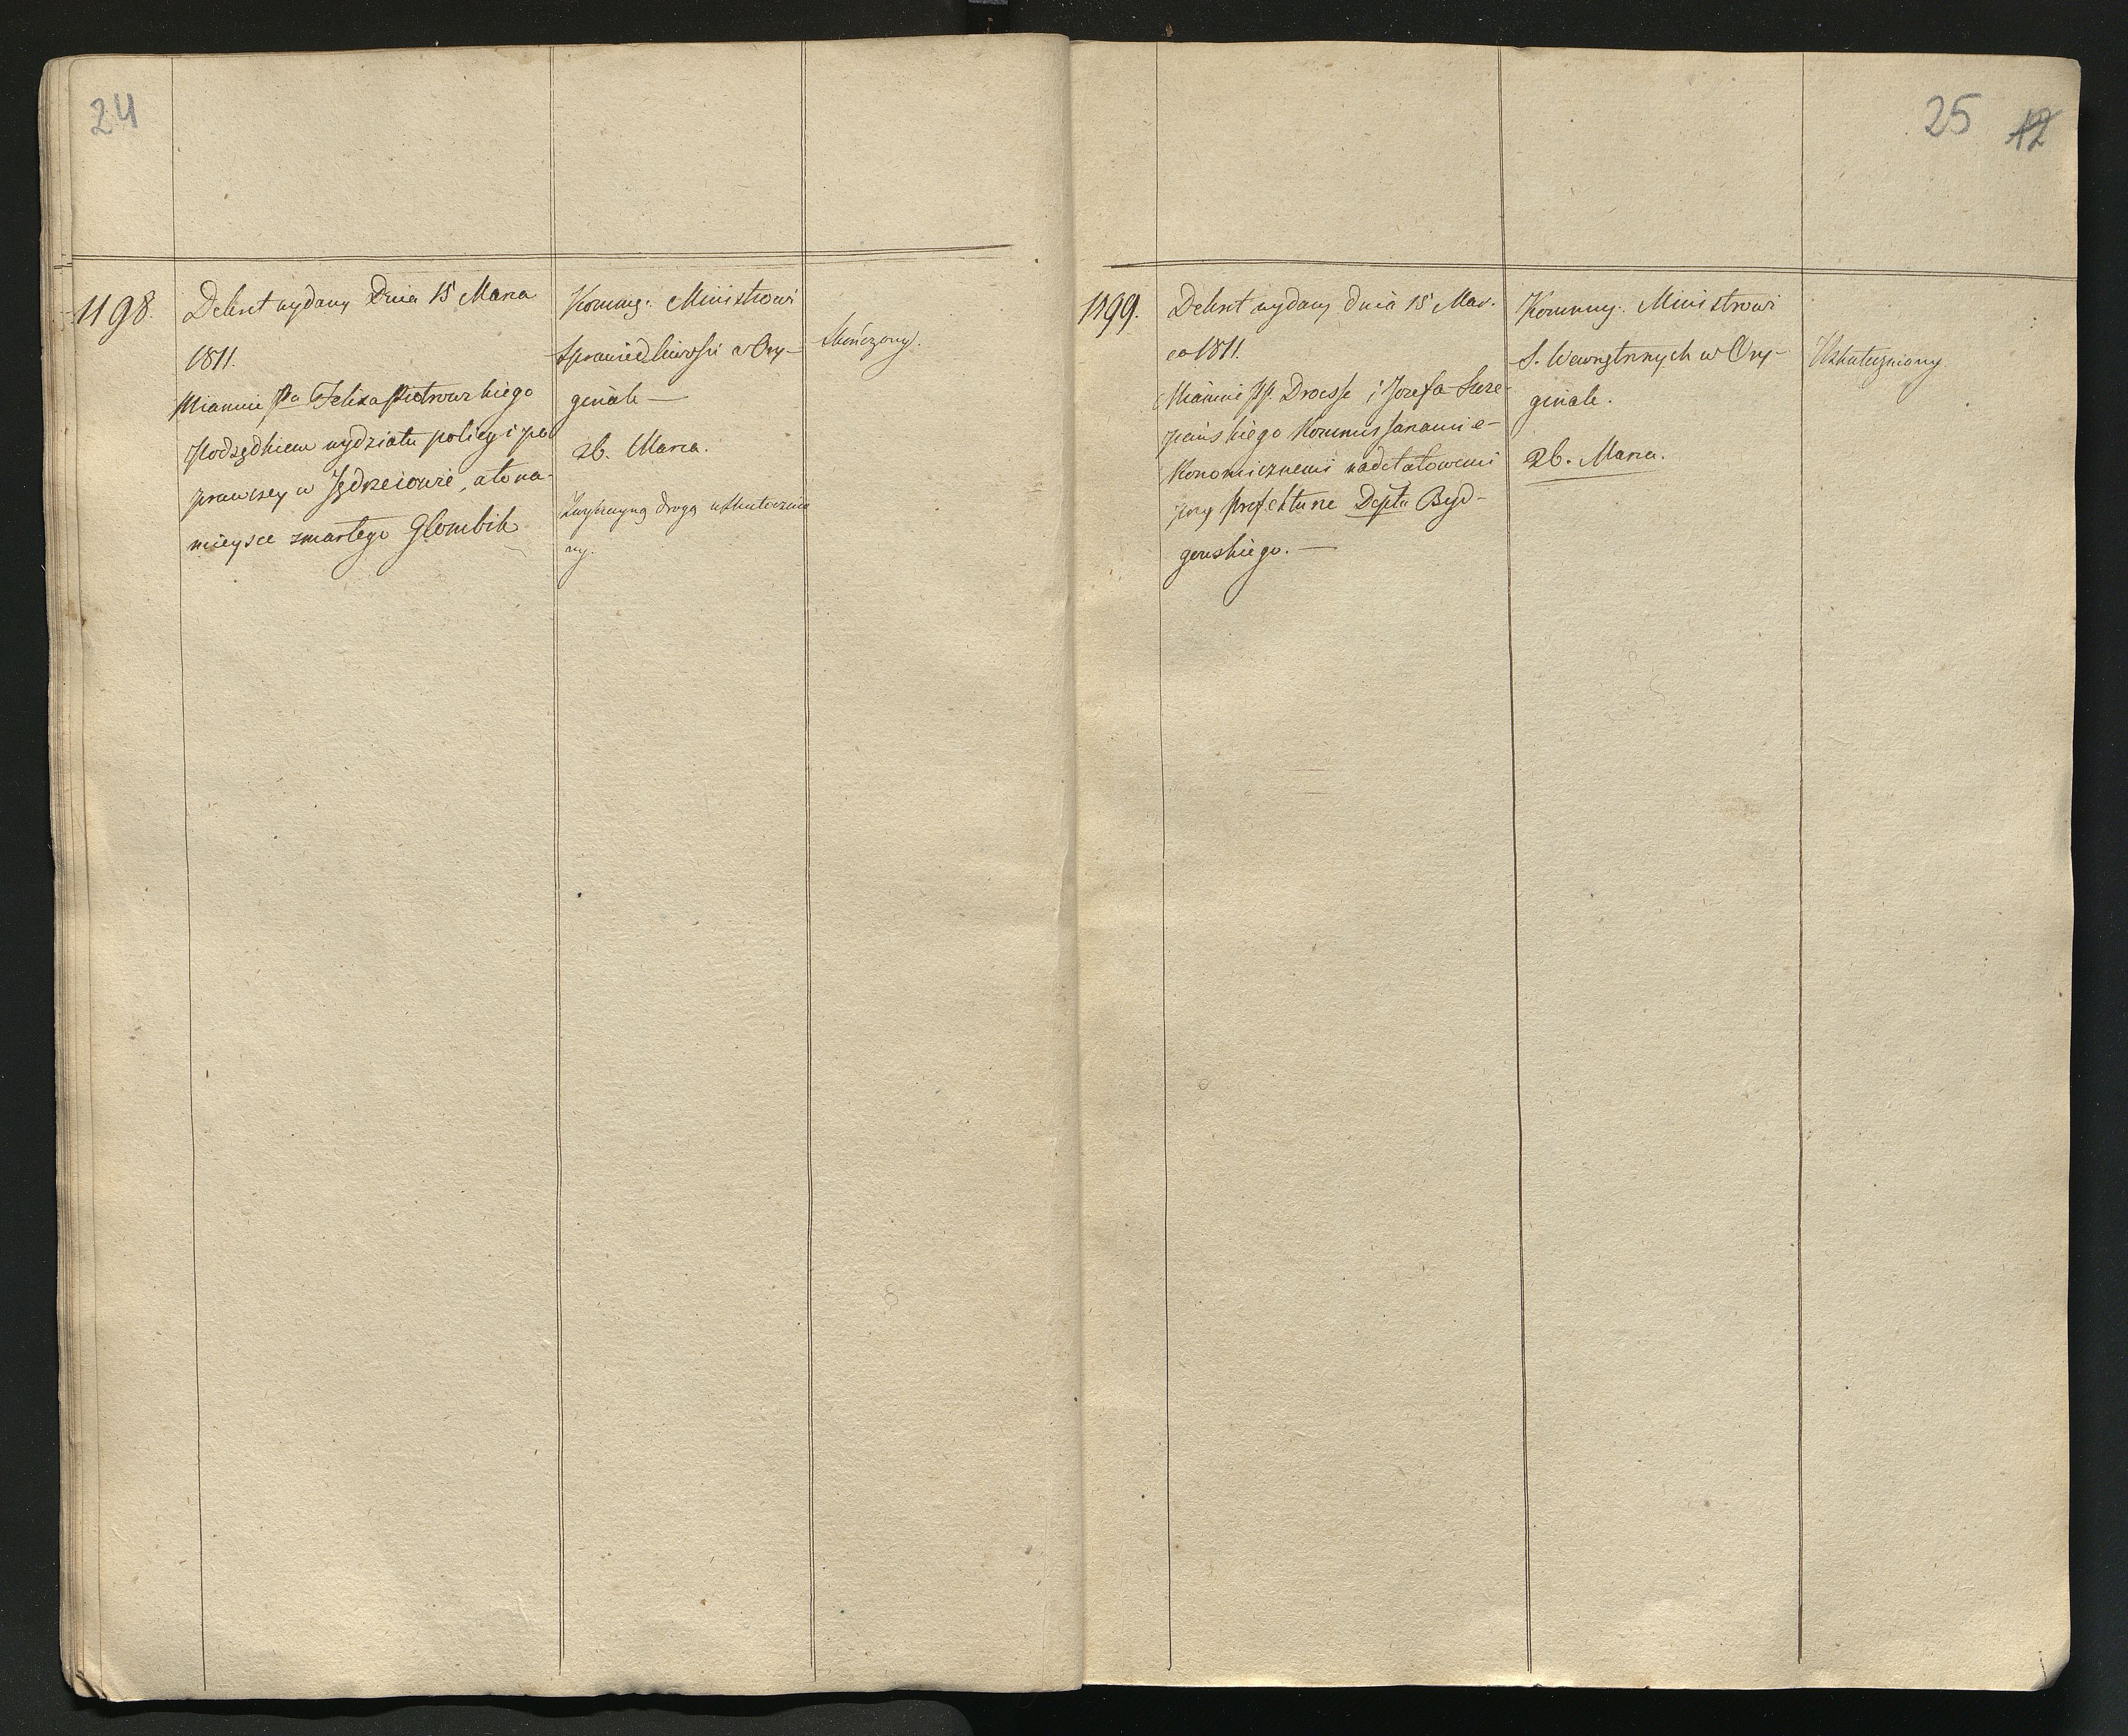 24
1198.
Dekret wydany Dnia 15 Marca
1811.
Mianuie Pa Felixa Piotrowskiego
Podsędkiem wydziału policyi po
prawczey w Jędrzeiowie, a to na
mieysce zmarłego Glombik
Kommg. Ministrowi
Sprawiedliwości w Ory-
ginale —
26. Marca.
Zwyczayną drogą uskutecznio
ny.
Skończony.
25 12
1199.
Dekret wydany dnia 15 Mar.
ca 1811.
Mianuie PP. Droesse i Jozefa Szcze-
pańskiego Kommissarzami e-
konomicznemi nadetatowemi
przy Prefekturze Deptu Byd-
goskiego. —
Kommg. Ministrowi
S. Wewnętrznych w Ory-
ginale.
26. Marca.
Uskuteczniony